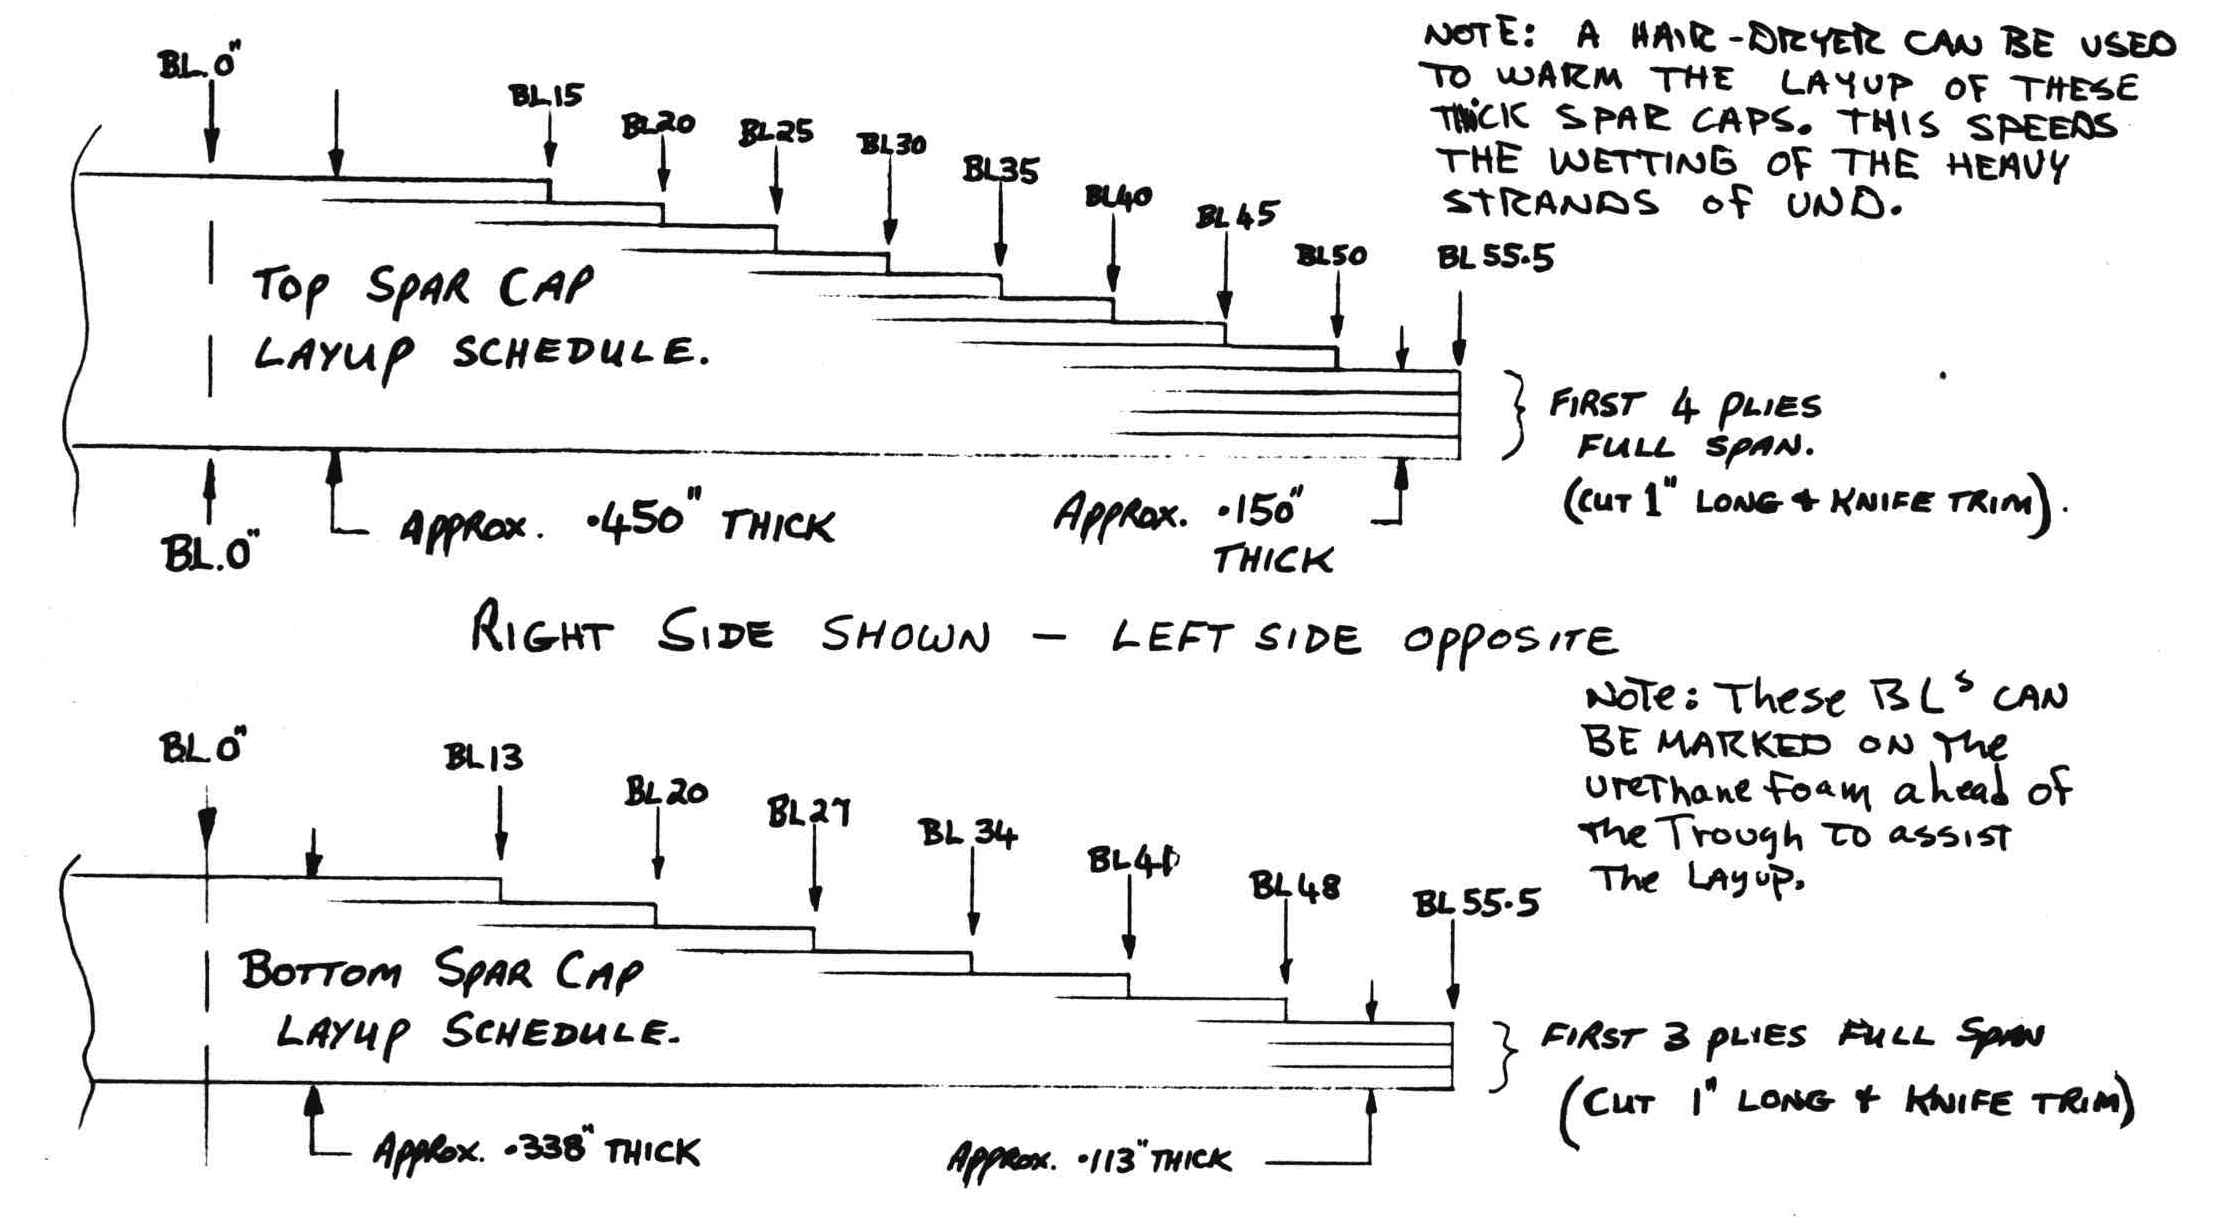 BL.0"
BL15
BL20
BL25
BL30
BL35
BL40
BL45
BL50
BL 55.5
NOTE: A HAIR-DRYER CAN BE USED
TO WARM THE LAYUP OF THESE
THICK SPAR CAPS. THIS SPEEDS
THE WETTING OF THE HEAVY
STRANDS OF UND.
TOP SPAR CAP
LAYUP SCHEDULE.
FIRST 4 PLIES
FULL SPAN.
(CUT 1" LONG & KNIFE TRIM).
BL.0"
APPROX. .450" THICK
APPROX. .150"
THICK
RIGHT SIDE SHOWN - LEFT SIDE OPPOSITE
NOTE: These BLs CAN
BE MARKED ON The
UreThane Foam ahead of
The Trough TO assist
The Layup.
BL.0"
BL13
BL20
BL27
BL 34
BL41
BL48
BL 55.5
BOTTOM SPAR CAP
LAYUP SCHEDULE.
FIRST 3 PLIES FULL SPAN
(CUT 1" LONG & KNIFE TRIM)
APPROX. .338" THICK
APPROX. .113" THICK